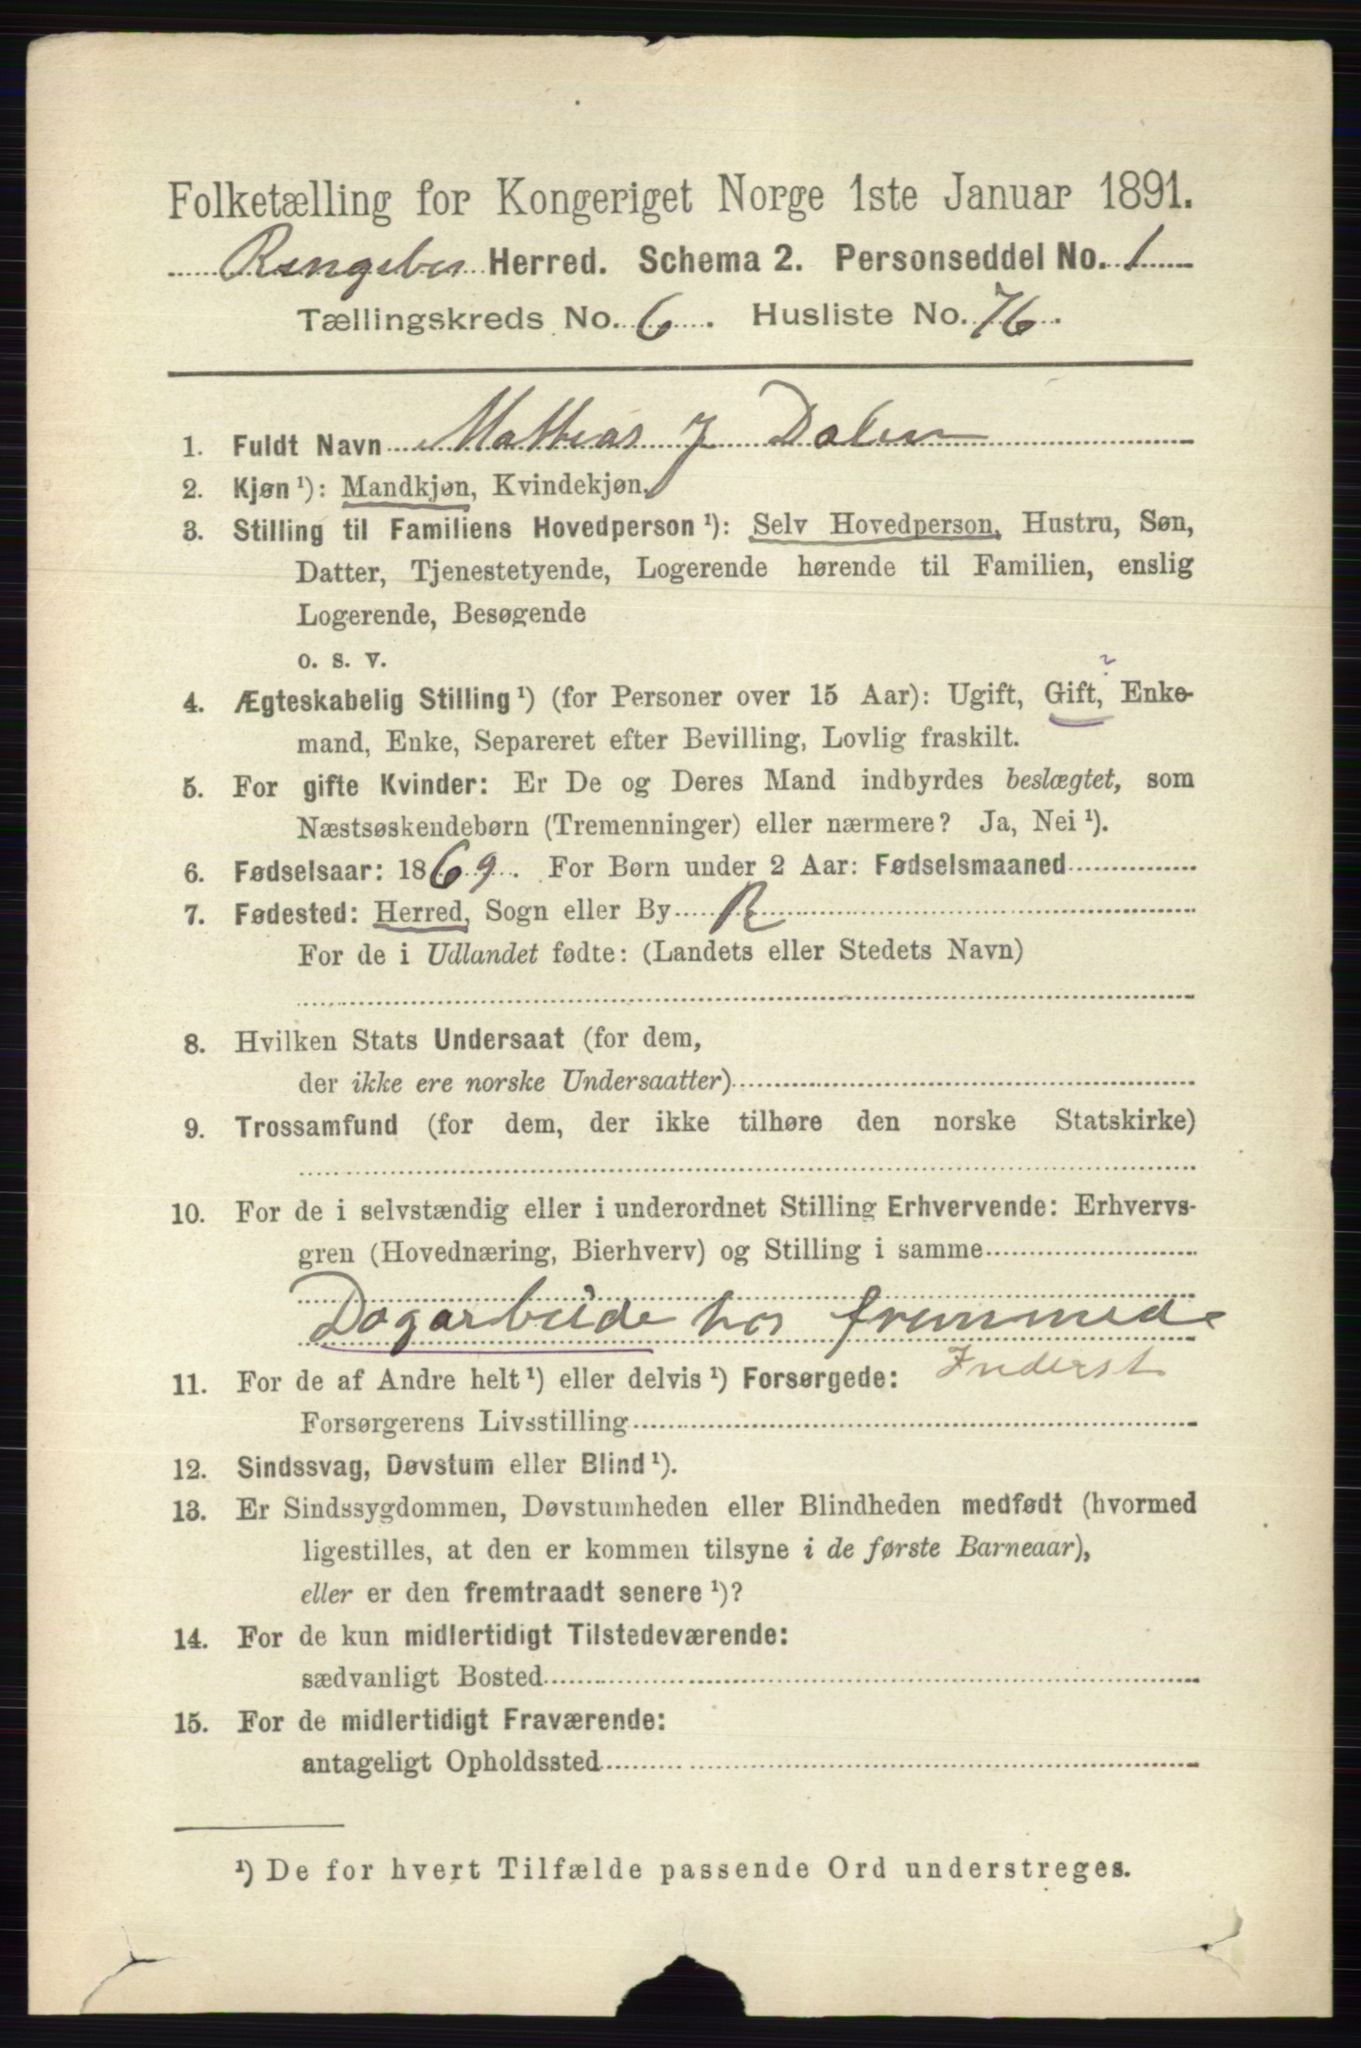 Folketælling for Kongeriget Norge 1ste Januar 1891.
Ringebu Herred. Schema 2. Personseddel No. 1
Tællingskreds No. 6. Husliste No. 76.
1. Fuldt Navn Mathias J Dalen
2. Kjøn ¹): Mandkjøn, Kvindekjøn.
3. Stilling til Familiens Hovedperson ¹): Selv Hovedperson, Hustru, Søn,
Datter, Tjenestetyende, Logerende hørende til Familien, enslig
Logerende, Besøgende
o. s. v.
?
4. Ægteskabelig Stilling ¹) (for Personer over 15 Aar): Ugift, Gift, Enke-
mand, Enke, Separeret efter Bevilling, Lovlig fraskilt.
5. For gifte Kvinder: Er De og Deres Mand indbyrdes beslægtet, som
Næstsøskendebørn (Tremenninger) eller nærmere? Ja, Nei ¹).
6. Fødselsaar: 1869. For Børn under 2 Aar: Fødselsmaaned
7. Fødested: Herred, Sogn eller By R
For de i Udlandet fødte: (Landets eller Stedets Navn)
8. Hvilken Stats Undersaat (for dem,
der ikke ere norske Undersaatter)
9. Trossamfund (for dem, der ikke tilhøre den norske Statskirke)
10. For de i selvstændig eller i underordnet Stilling Erhvervende: Erhvervs-
gren (Hovednæring, Bierhverv) og Stilling i samme
Dagarbeide hos fremmede
Inderst
11. For de af Andre helt ¹) eller delvis ¹) Forsørgede:
Forsørgerens Livsstilling
12. Sindssvag, Døvstum eller Blind ¹).
13. Er Sindssygdommen, Døvstumheden eller Blindheden medfødt (hvormed
ligestilles, at den er kommen tilsyne i de første Barneaar),
eller er den fremtraadt senere ¹)?
14. For de kun midlertidigt Tilstedeværende:
sædvanligt Bosted
15. For de midlertidigt Fraværende:
antageligt Opholdssted
¹) De for hvert Tilfælde passende Ord understreges.